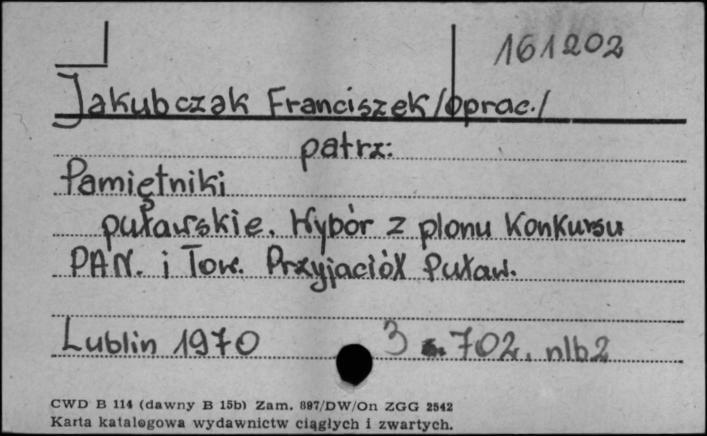 161202
Jakubczak Franciszek/oprac./
patrz:
Pamiętniki
puławskie. Wybór z plonu Konkursu
PAN. i Tow. Przyjaciół Puław.
Lublin 1970 3 s. 702, nlb2
CWD B 114 (dawny B 15b) Zam. 897/DW/On ZGG 2542
Karta katalogowa wydawnictw ciągłych i zwartych.